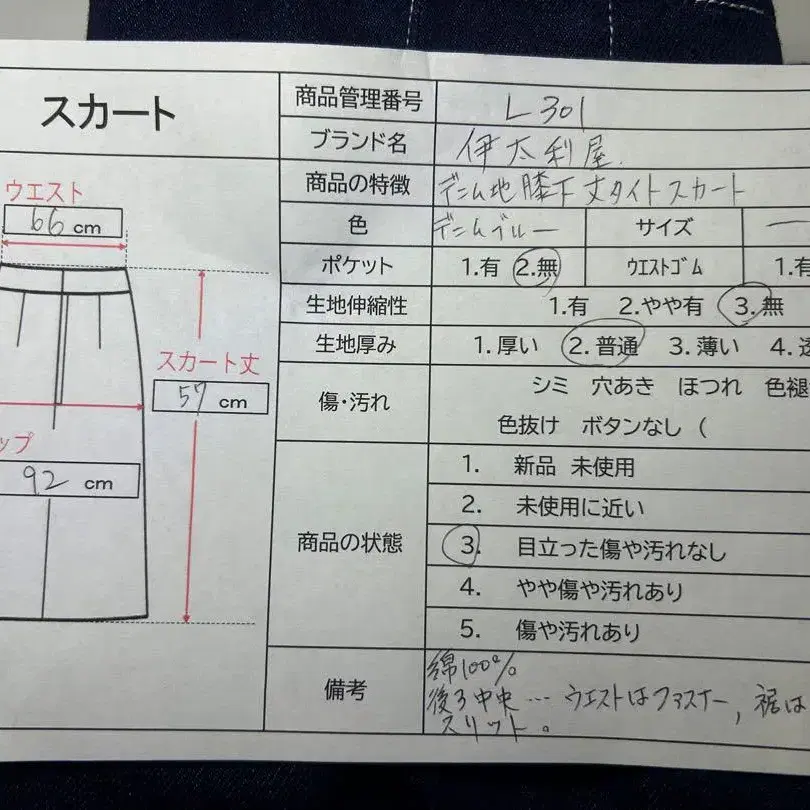 スカート
ウエスト
66 cm
スカート丈
57 cm
ップ
92 cm
商品管理番号 L301
ブランド名 伊太利屋.
商品の特徴 デニム地膝下丈タイトスカート
色 デニムブルー サイズ ー
ポケット 1.有 2.無 ウエストゴム 1.有
生地伸縮性 1.有 2.やや有 3.無
生地厚み 1.厚い 2.普通 3.薄い 4.透
傷・汚れ シミ 穴あき ほつれ 色褪
色抜け ボタンなし (
商品の状態
1. 新品 未使用
2. 未使用に近い
3. 目立った傷や汚れなし
4. やや傷や汚れあり
5. 傷や汚れあり
備考 綿100%
後ろ中央…ウエストはファスナー, 裾は
スリット。